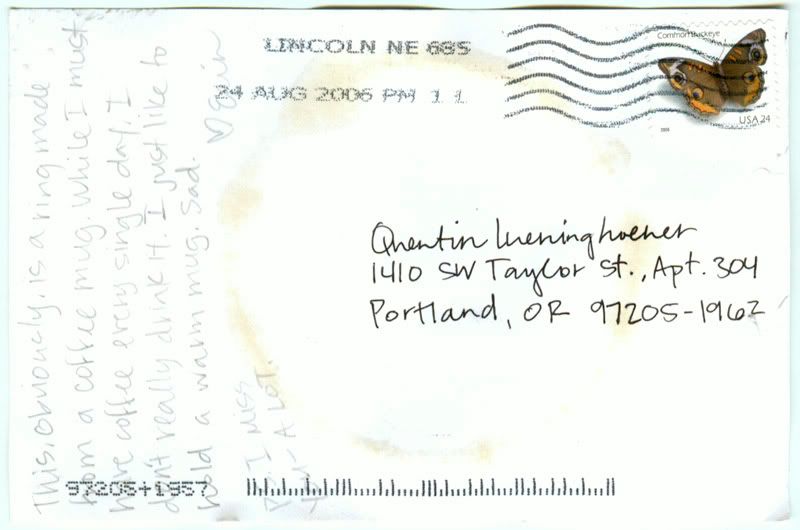 LINCOLN NE 685
24 AUG 2006 PM 11
Common Buckeye
USA 24
2006
This, obviously, is a ring made
from a coffee mug. While I must
have coffee every single day, I
don't really drink it. I just like to
hold a warm mug. Sad.
PS. I miss
you - A LOT.
Quentin
1410 SW Taylor St., Apt. 304
Portland, OR 97205-1962
97205+1957